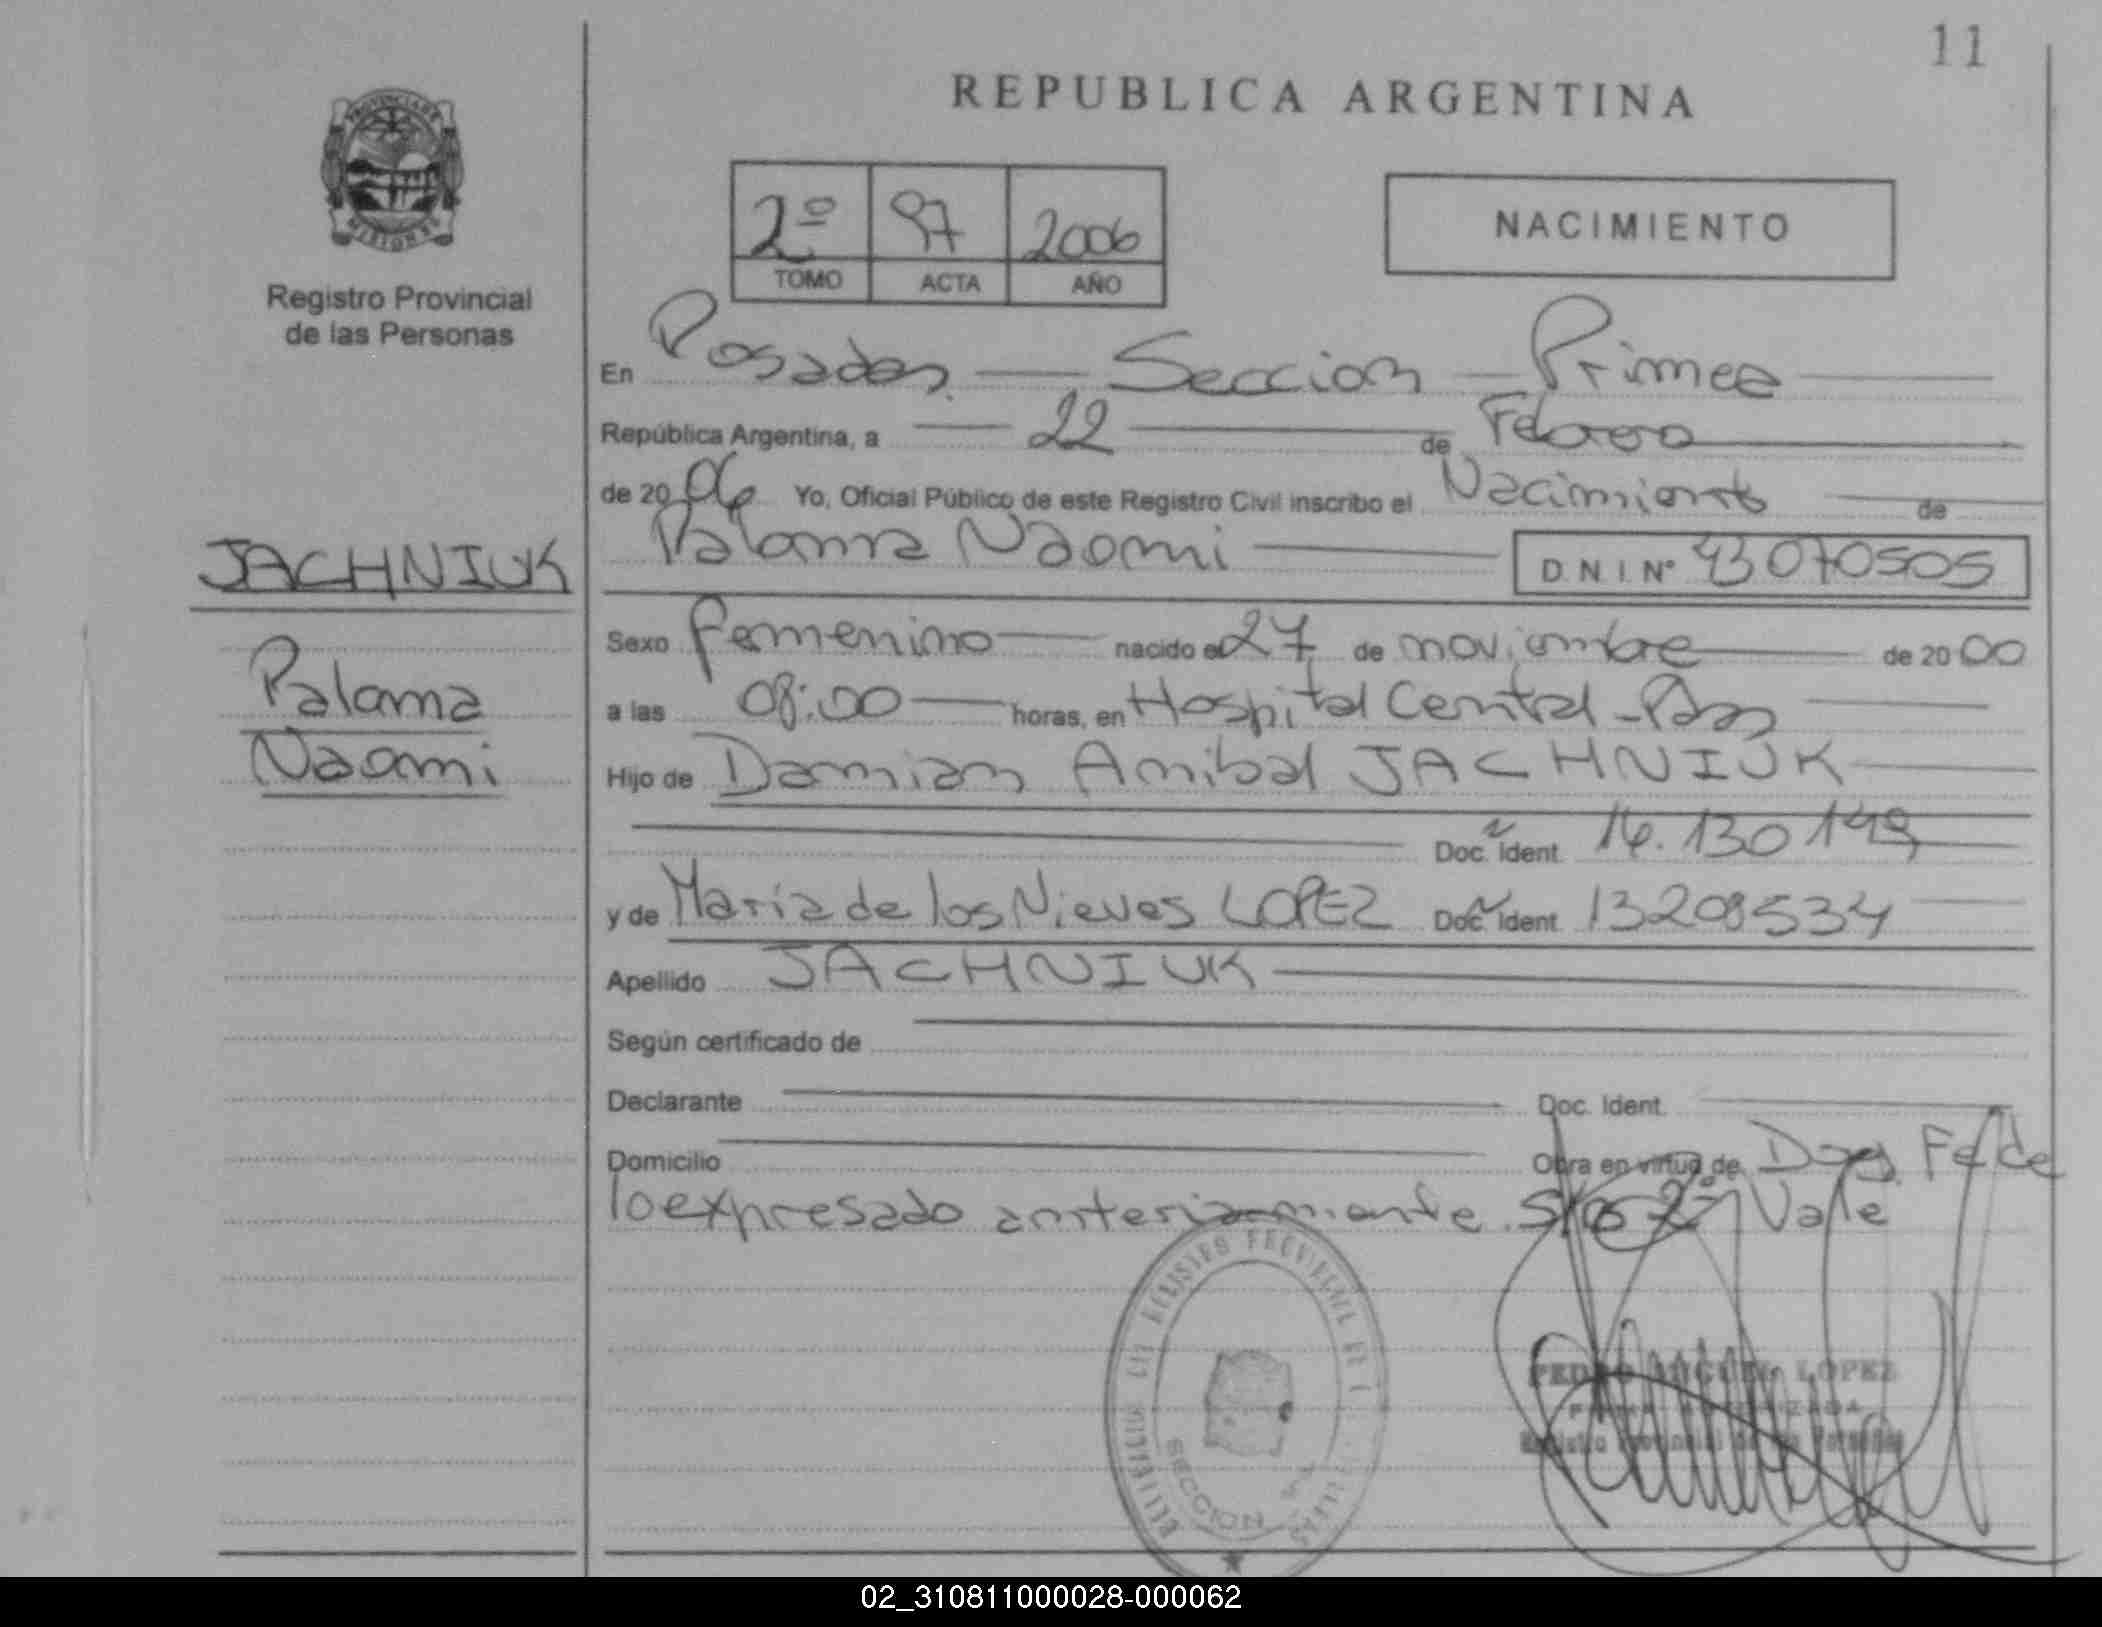 11
REPUBLICA ARGENTINA
PROVINCIA DE
MISIONES
Registro Provincial
de las Personas
2º 97 2006
TOMO ACTA AÑO
NACIMIENTO
En Posadas. — Seccion — Primea
República Argentina, a 22 de Febrero
de 2006 Yo, Oficial Público de este Registro Civil inscribo el Nacimiento de
Paloma Naomi D.N.I. Nº 43070505
JACHNIUK
Paloma
Naomi
Sexo femenino nacido el 27 de noviembre de 2000
a las 08:00 horas, en Hospital Central - Pdas
Hijo de Damian Anibal JACHNIUK
Doc. Ident. 14.130.149
y de Maria de los Nieves LOPEZ Doc. Ident. 13208534
Apellido JACHNIUK
Según certificado de
Declarante Doc. Ident.
Domicilio Obra en virtud de Fe de
lo expresado anteriormente. Vale
SECCION
LOPEZ
Registro Provincial de las Personas
02_310811000028-000062